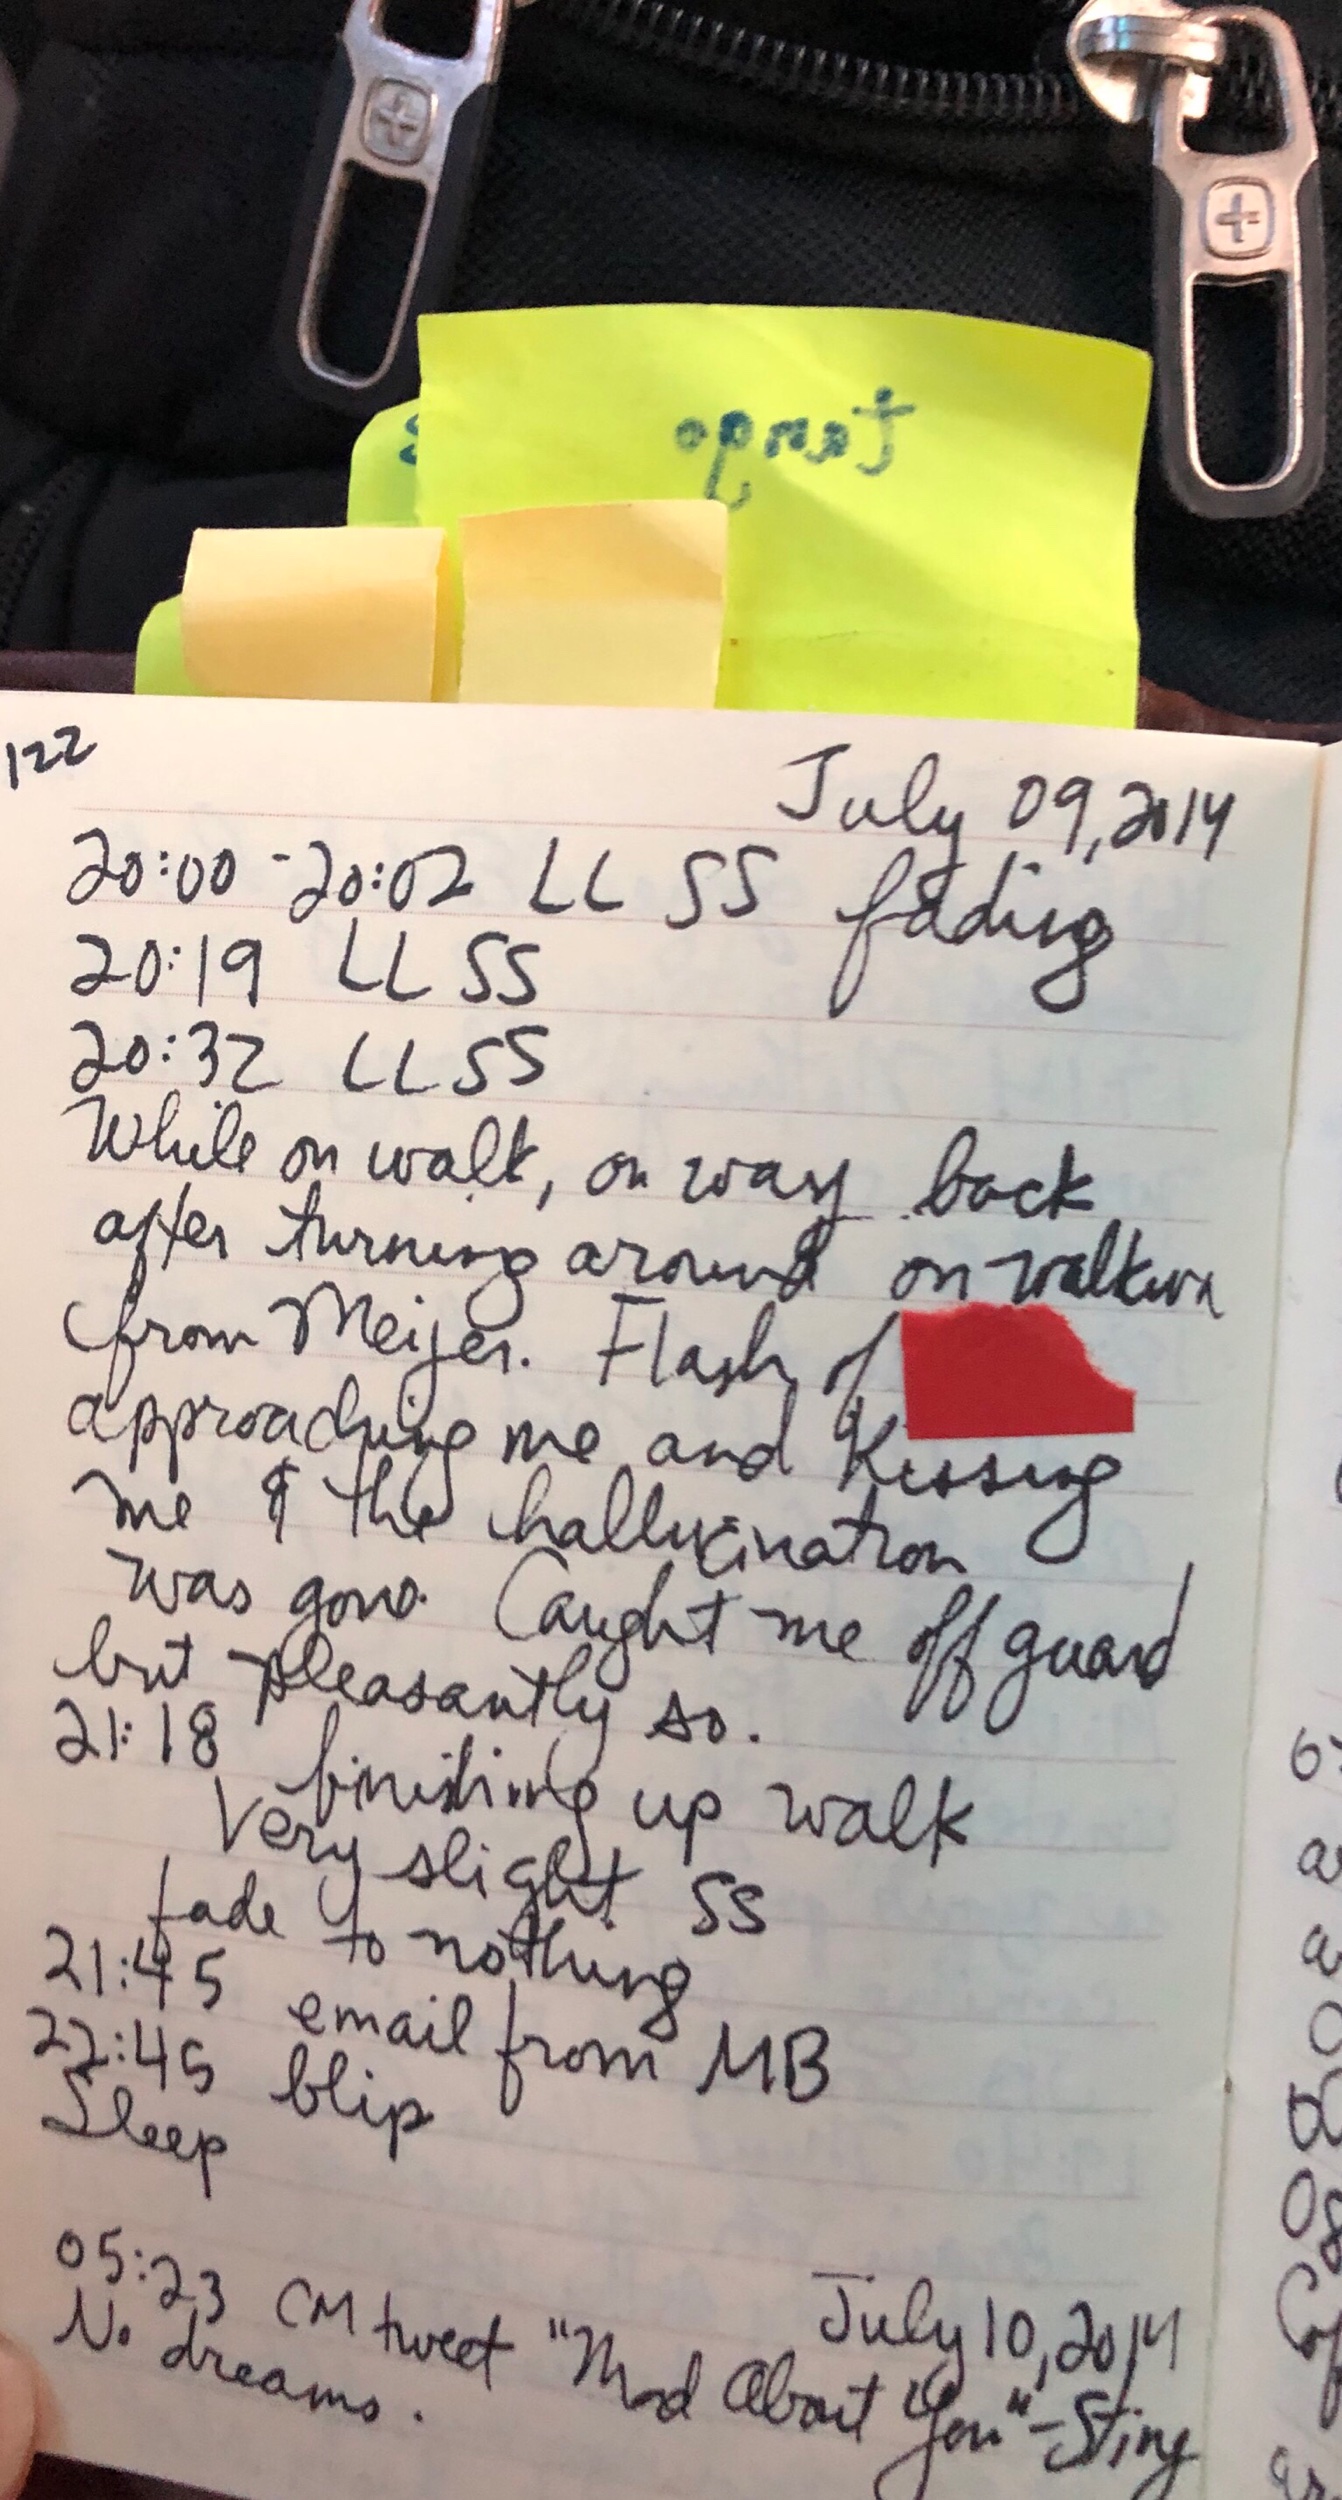 122
July 09, 2014
20:00 - 20:02 LL SS fading
20:19 LL SS
20:32 LL SS
While on walk, on way back
after turning around on
from Meijer. Flash of
approaching me and kissing
me & the hallucination
was gone. Caught me off guard
but pleasantly so.
21:18 finishing up walk
Very slight SS
fade to nothing
21:45 email from MB
22:45 blip
Sleep
July 10, 2014
05:23 CM tweet "Mad About You" - Sting
No dreams.